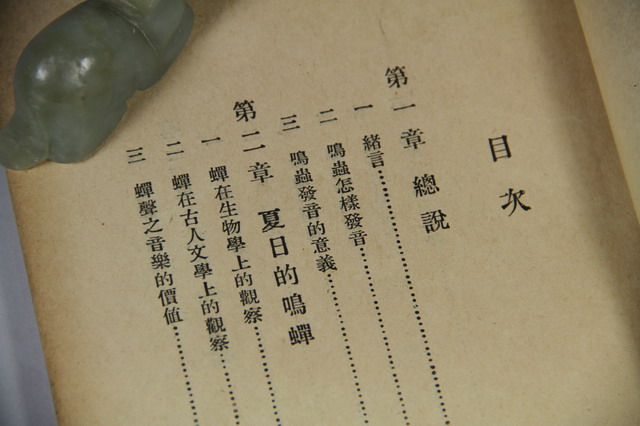 目次
第一章 總說
一 緒言
二 鳴蟲怎樣發音
三 鳴蟲發音的意義
第二章 夏日的鳴蟬
一 蟬在生物學上的觀察
二 蟬在古人文學上的觀察
三 蟬聲之音樂的價值